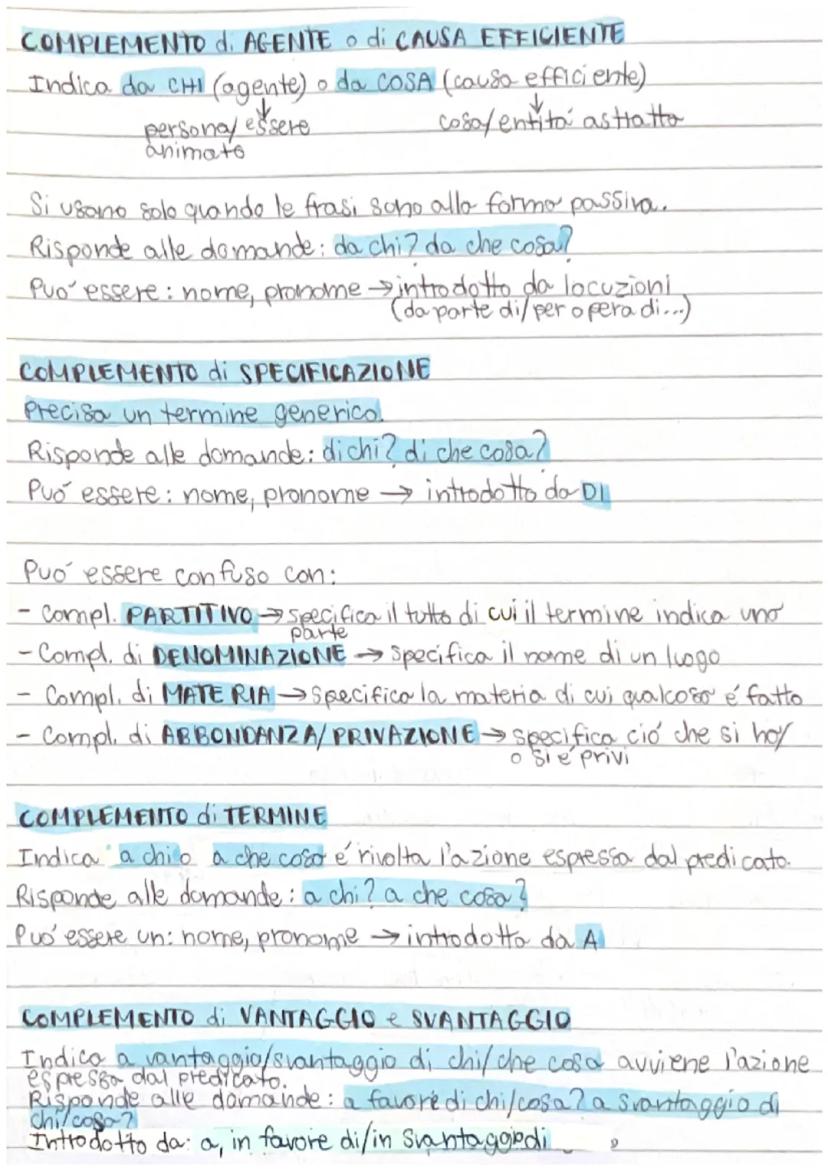 COMPLEMENTO di AGENTE o di CAUSA EFFICIENTE
Indica da CHI (agente) o da COSA (causa efficiente)
persona/essere animato
cosa/entità astratta
Si usano solo quando le frasi sono alla forma passiva.
Risponde alle domande: da chi? da che cosa?
Può essere: nome, pronome → introdotto da locuzioni
(da parte di/per opera di...)
COMPLEMENTO di SPECIFICAZIONE
Precisa un termine generico.
Risponde alle domande: di chi? di che cosa?
Può essere: nome, pronome → introdotto da DI
Può essere confuso con:
- Compl. PARTITIVO → specifica il tutto di cui il termine indica una
parte
- Compl. di DENOMINAZIONE → specifica il nome di un luogo
- Compl. di MATERIA → specifica la materia di cui qualcosa é fatto
- Compl. di ABBONDANZA/PRIVAZIONE → specifica ció che si ha/
o si é privi
COMPLEMENTO di TERMINE
Indica a chi o a che cosa é rivolta l'azione espressa dal predicato.
Risponde alle domande: a chi? a che cosa?
Puó essere un: nome, pronome → introdotto da A
COMPLEMENTO di VANTAGGIO e SVANTAGGIO
Indica a vantaggio/svantaggio di chi/che cosa avviene l'azione
espressa dal predicato.
Risponde alle domande: a favore di chi/cosa? a svantaggio di
chi/cosa?
Introdotto da: a, in favore di/in svantaggio di